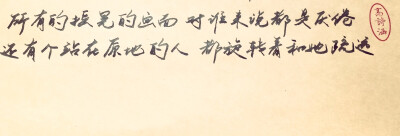 所有的摇晃的画面 对谁来说都是厌倦
还有个站在原地的人 都旋转着和她疏远
高诗涵